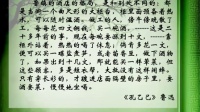 鲁镇的酒店的格局，是和别处不同的：都
是当街一个曲尺形的大柜台，柜里面预备着热
水，可以随时温酒。做工的人，傍午傍晚散了
工，每每花四文铜钱，买一碗酒，——这是二
十多年前的事，现在每碗要涨到十文，——靠
柜外站着，热热的喝了休息；倘肯多花一文，
便可以买一碟盐煮笋，或者茴香豆，做下酒物
了，如果出到十几文，那就能买一样荤菜，但
这些顾客，多是短衣帮，大抵没有这样阔绰。
只有穿长衫的，才踱进店面隔壁的房子里，要
酒要菜，慢慢地坐喝。
《孔乙己》鲁迅